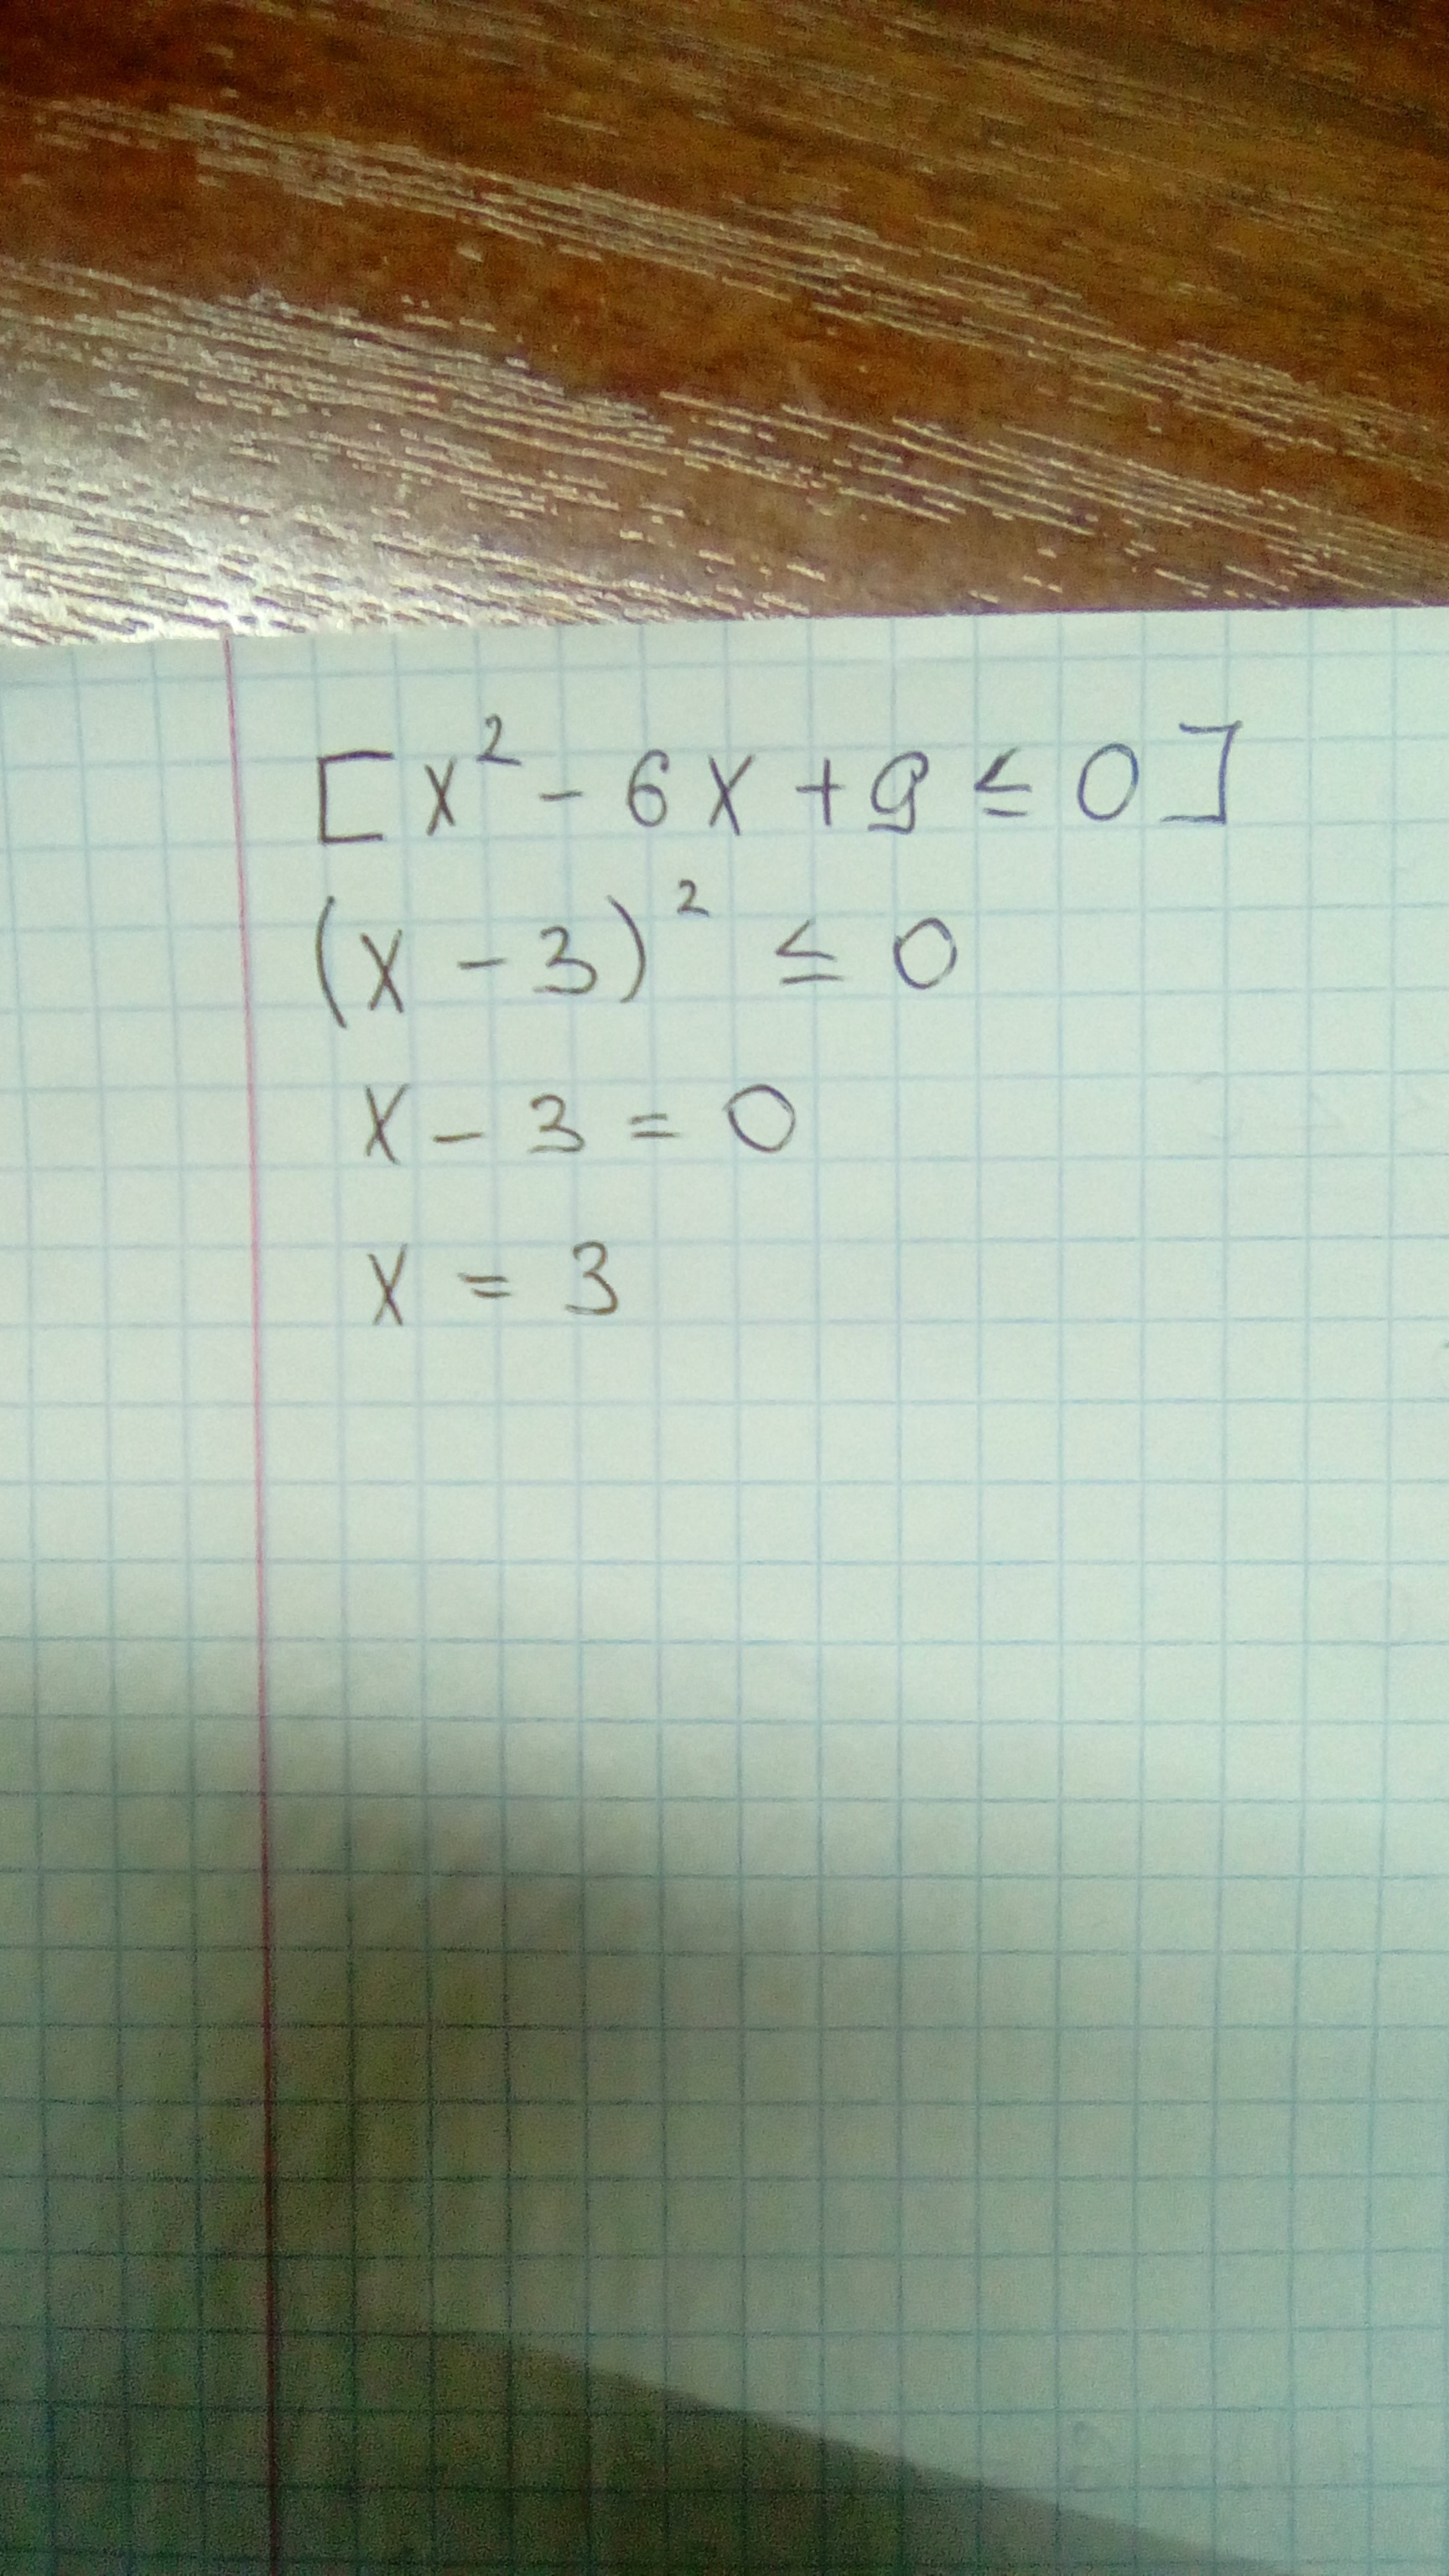 [x² - 6x + 9 ≤ 0]
(x - 3)² ≤ 0
x - 3 = 0
x = 3